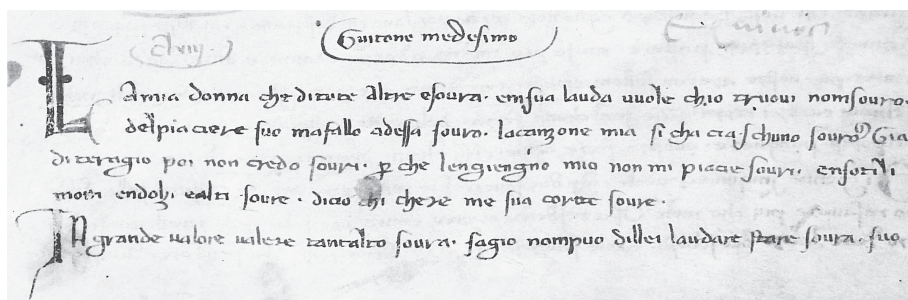 Guittone medesimo
Lamia donna che ditute altre esoura · emsua lauda vuole chio truoui nomsouro ·
delpiaciere suo mafallo adessa souro · lacanzone mia si cha cia schuno souro Gia
di ceragio poi non credo souri · p che lengiengno mio non mi piacie souri · ensotili
motti endolzi ealti soure · dicio chi chere me sua corte soure ·
A grande ualore ualere tantalto soura · sagio nompuo dillei laudare stare soura · suo